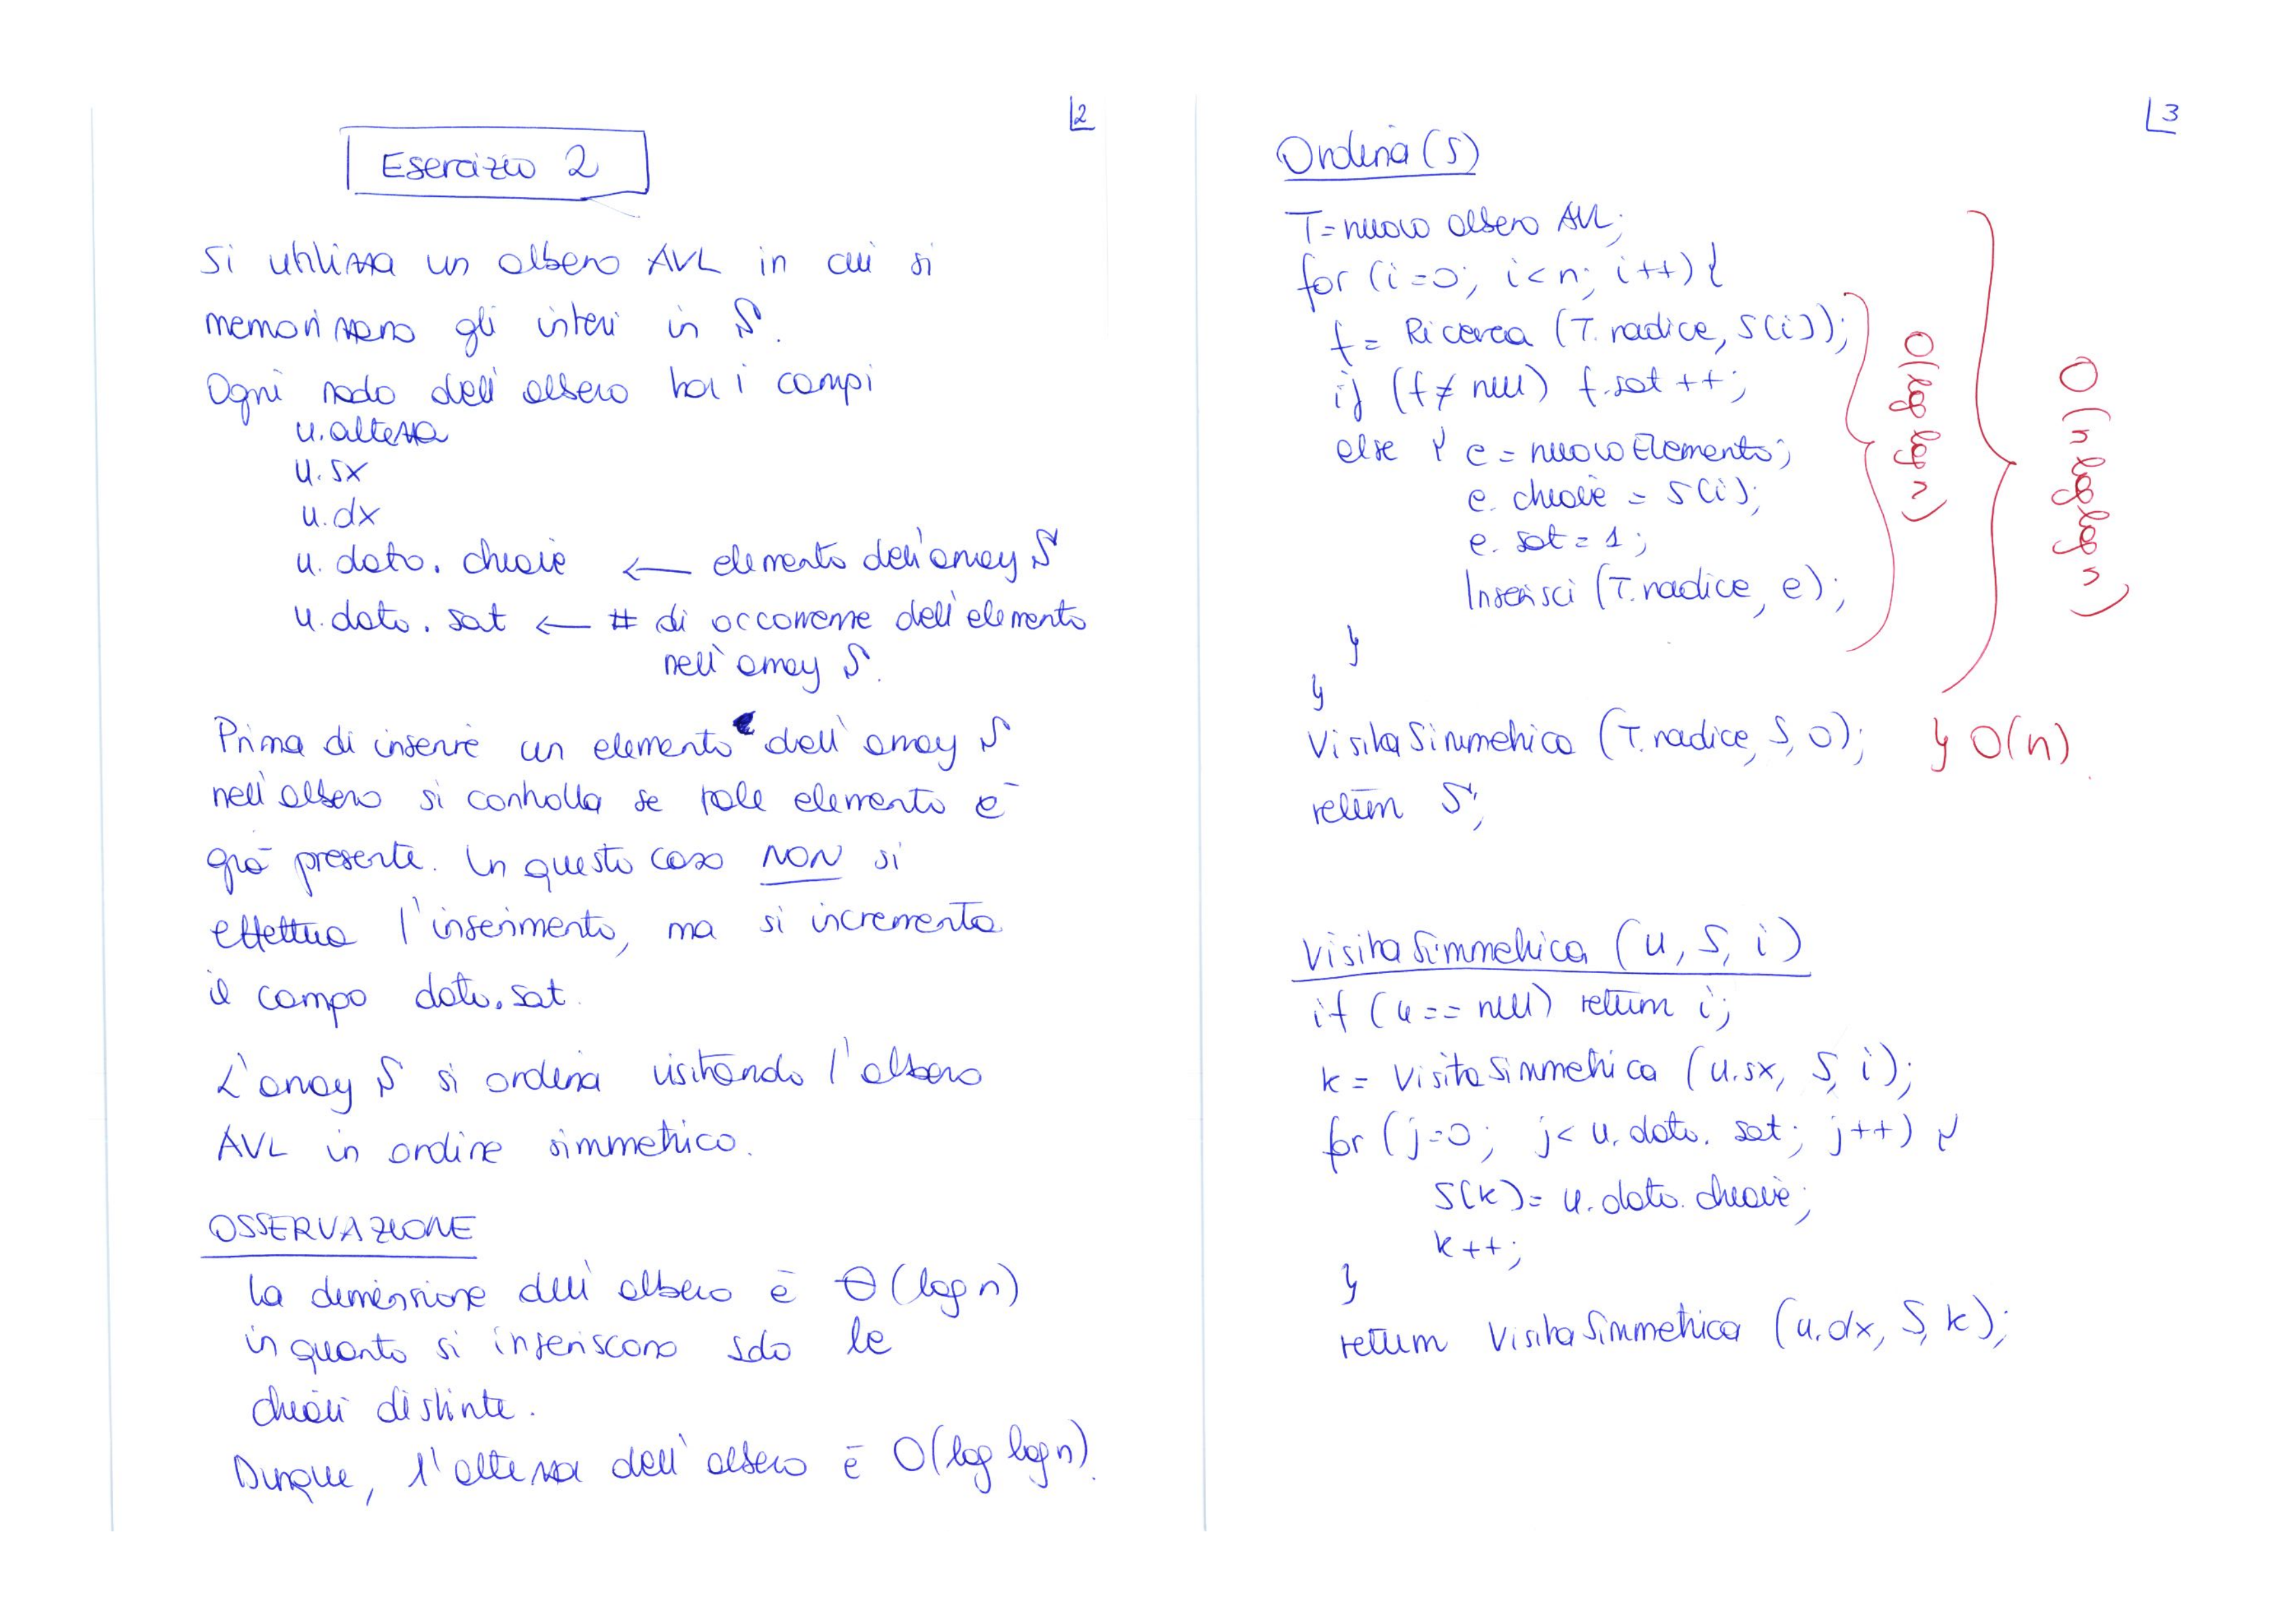 2
Esercizio 2
Si utilizza un albero AVL in cui si
memorizzano gli interi in S.
Ogni nodo dell'albero ha i campi
u.altezza
u.sx
u.dx
u.dato.chiave ← elemento dell'array S
u.dato.sat ← # di occorrenze dell'elemento
nell'array S.
Prima di inserire un elemento dell'array S
nell'albero si controlla se tale elemento è
già presente. In questo caso NON si
effettua l'inserimento, ma si incrementa
il campo dato.sat.
L'array S si ordina visitando l'albero
AVL in ordine simmetrico.
OSSERVAZIONE
La dimensione dell'albero è Θ(log n)
in quanto si inseriscono solo le
chiavi distinte.
Dunque, l'altezza dell'albero è O(log log n).
3
Ordina(S)
T = nuovo albero AVL;
for (i=0; i<n; i++) {
f = Ricerca (T.radice, S[i]);
if (f ≠ null) f.sat ++;
else { e = nuovoElemento;
e.chiave = S[i];
e.sat = 1;
Inserisci (T.radice, e);
}
}
O(log log n)
O(n log log n)
VisitaSimmetrica (T.radice, S, 0); } O(n)
return S;
VisitaSimmetrica (u, S, i)
if (u == null) return i;
k = VisitaSimmetrica (u.sx, S, i);
for (j=0; j< u.dato.sat; j++) {
S[k] = u.dato.chiave;
k++;
}
return VisitaSimmetrica (u.dx, S, k);